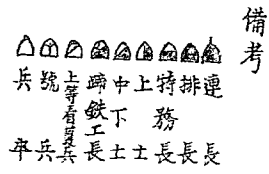 備考
連長
排長
特務長
上士
中下士
蹄鉄工長
上等看護兵
號兵
兵卒